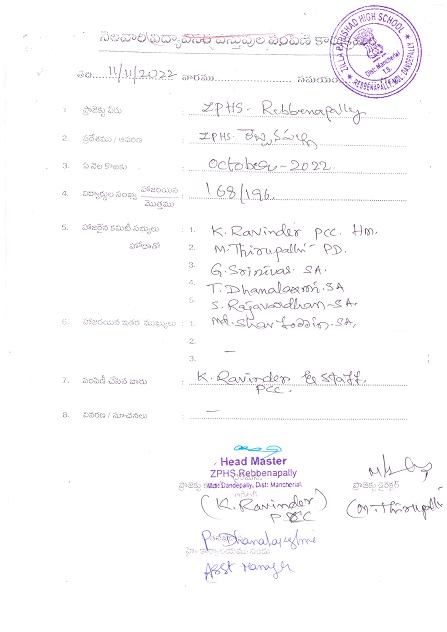 నెలవారి విద్యావసర వస్తువుల పంపిణీ
ZILLA PARISHAD HIGH SCHOOL
Dist: Mancherial
T.S.
తేది 11/11/2022 వారము సమయం
1. ప్రాజెక్టు పేరు : ZPHS- Rebbenapally
2. ప్రదేశము / ఆవరణ : ZPHS- రెబ్బనపల్లి
3. ఏ నెల కొరకు : October-2022
4. విద్యార్థుల సంఖ్య హాజరయిన / మొత్తము : 168/196
5. హాజరైన కమిటీ సభ్యులు : 1. K. Ravinder PCC. Hm.
హోదాతో 2. M. Thirupathi PD.
3. G. Srinivas SA.
4. T. Dhanalaxmi. SA
5. S. Rajavardhan-SA.
6. హాజరయిన ఇతర ముఖ్యులు : 1. Md. SA.
2.
3. —
7. పంపిణీ చేసిన వారు : K. Ravinder & Staff.
PCC.
8. వివరణ / సూచనలు : —
Head Master
ZPHS.Rebbenapally
Mdl: Dandepally, Dist: Mancherial
ప్రాజెక్టు ప్రాజెక్టు డైరెక్టర్
(K. Ravinder) (M. Thirupathi
PCC
P. Dhanalaxmi
Asst Manager